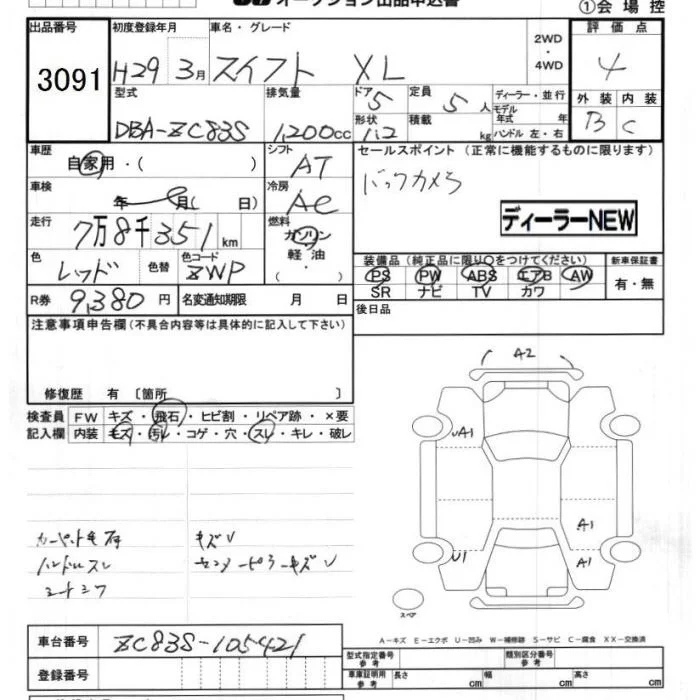 オークション出品申込書
①会場控
出品番号 3091
初度登録年月 H29 3月
車名・グレード スイフト XL
2WD・4WD
評価点 4
型式 DBA-ZC83S
排気量 1200cc
ドア 5
形状
定員 5人
積載 kg
ディーラー・並行
モデル年式 年
ハンドル 左・右
外装 B
内装 C
車歴 自家用・( )
シフト AT
車検 年 月( 日)
冷房 AC
走行 7万8千351km
燃料 ガソリン・軽油・( )
色 レッド
色替
色コード ZWP
R券 9,380円
名変通知期限 月 日
セールスポイント(正常に機能するものに限ります)
バックカメラ
ディーラーNEW
装備品(純正品に限り○をつけてください)
新車保証書
PS PW ABS エアB AW
SR ナビ TV カワ
有・無
後日品
注意事項申告欄(不具合内容等は具体的に記入して下さい)
修復歴 有 〔箇所 〕
検査員記入欄
FW キズ・飛石・ヒビ割・リペア跡・×要
内装 キズ・汚レ・コゲ・穴・スレ・キレ・破レ
ハンドルスレ
シートシワ
キズV
センターピラーキズV
A2
A1
A1
U1
A1
スペア
A-キズ E-エクボ U-凹み W-補修跡 S-サビ C-腐食 XX-交換済
車台番号 ZC83S-105421
登録番号
型式指定番号 参考
類別区分番号 参考
車庫証明用 参考
長さ cm
幅 cm
高さ cm